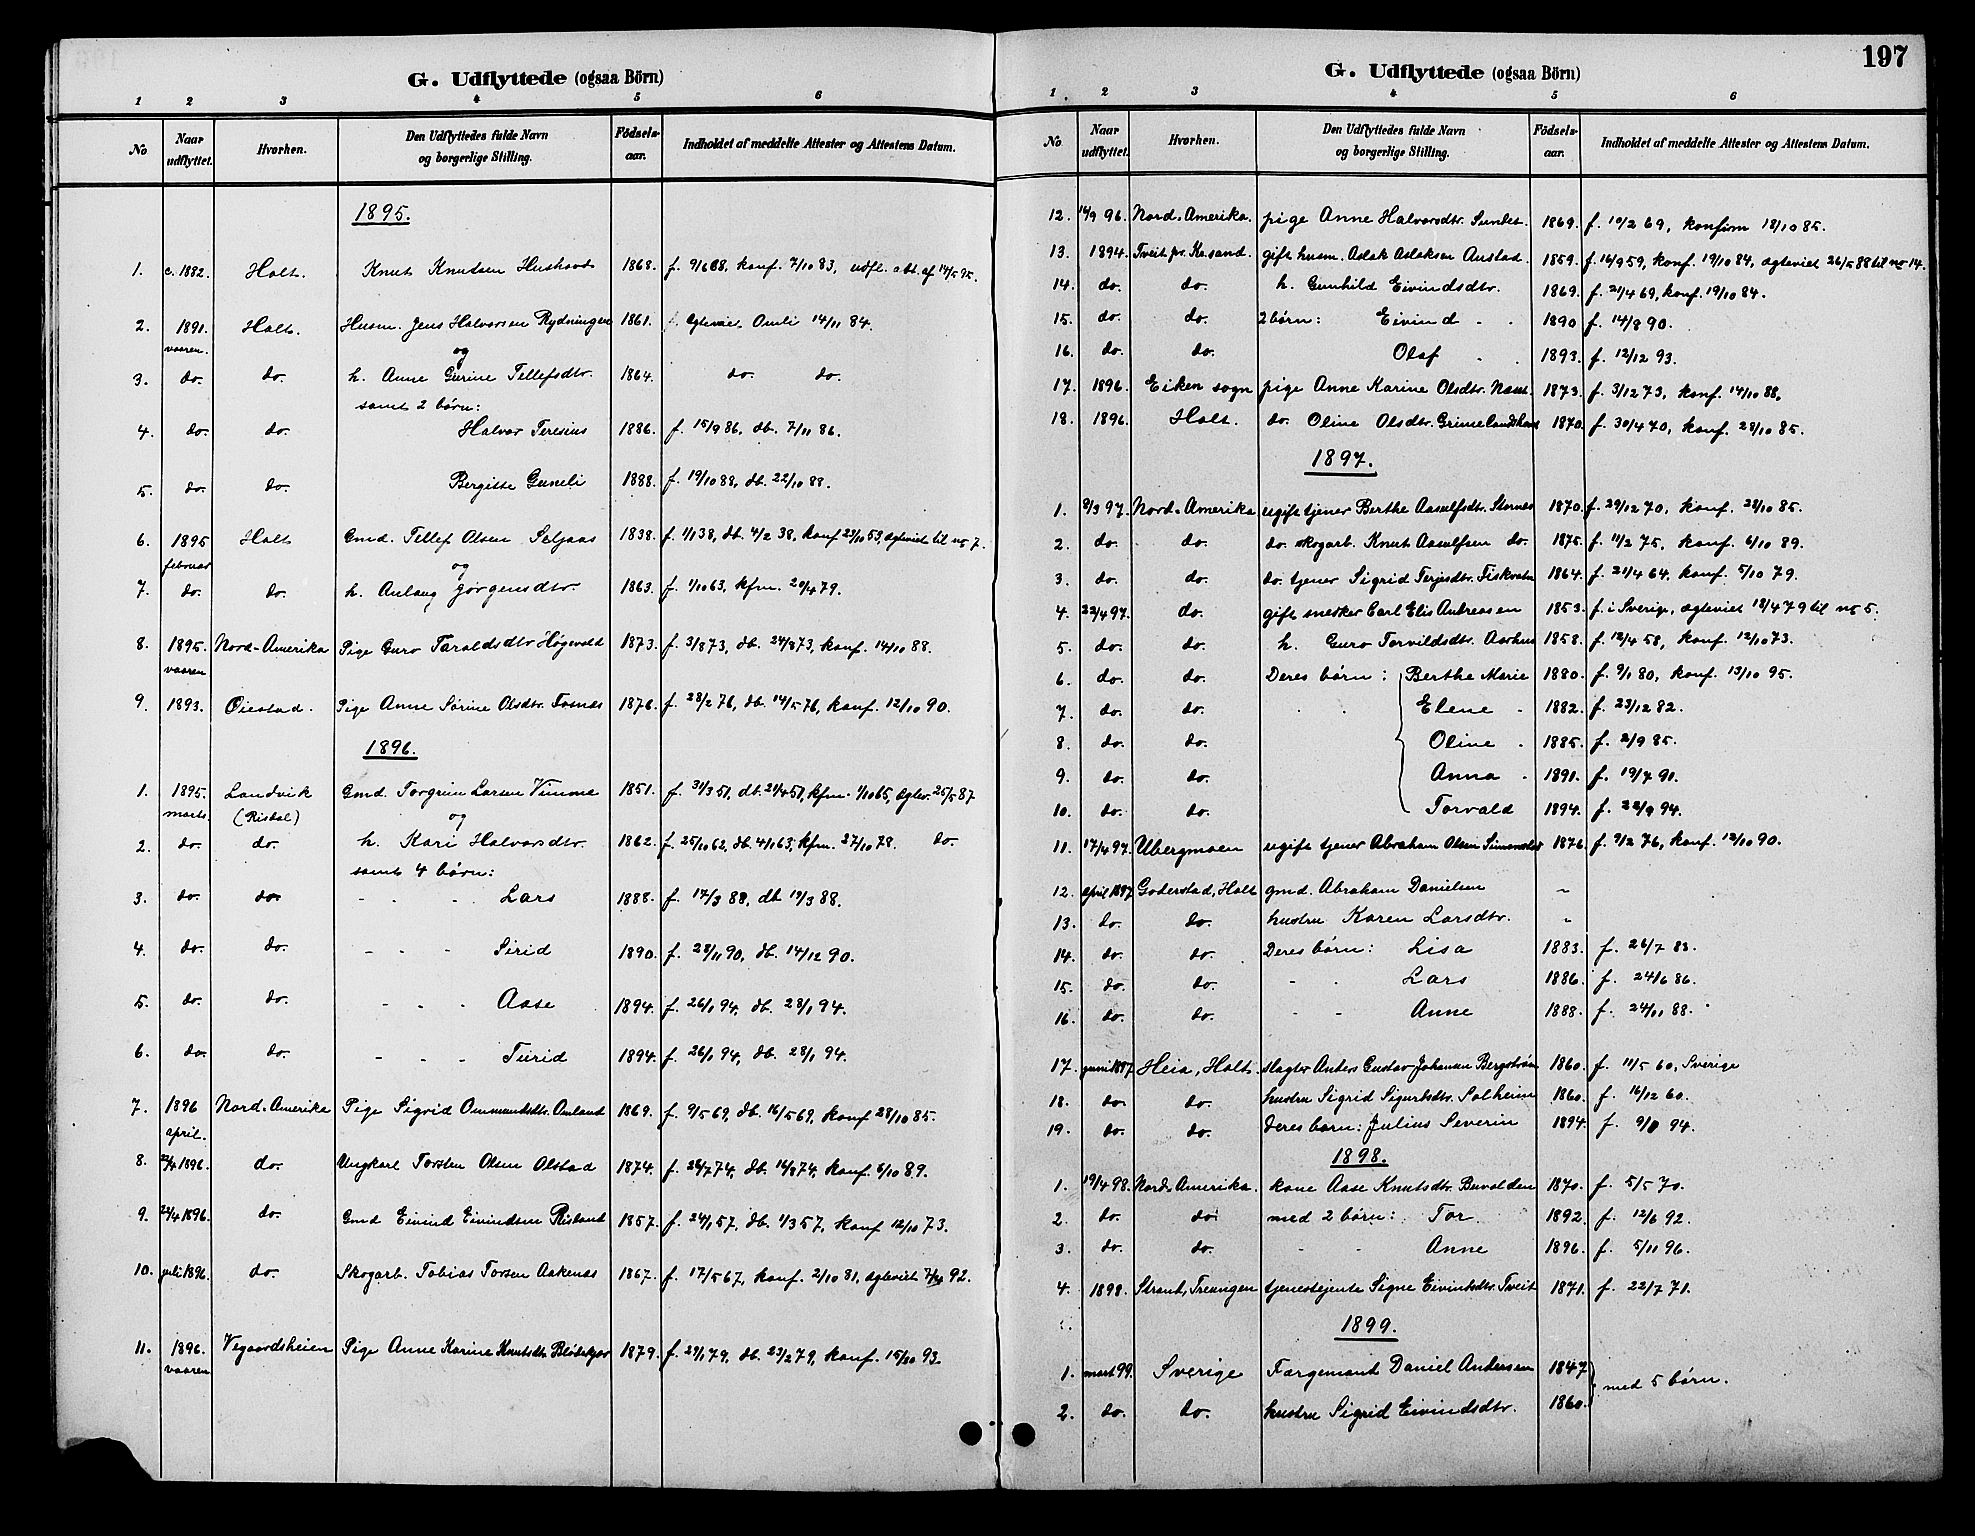 G. Udflyttede (ogsaa Börn)
1 2 3 4 5 6
No Naar udflyttet. Hvorhen. Den Udflyttedes fulde Navn og borgerlige Stilling. Födsels-aar. Indholdet af meddelte Attester og Attestens Datum.
1895.
1. c. 1882. Holt. Knut Knutsen 1868. f. 9/6 68, konf. 7/10 83, udfl. att. af 14/5 95.
2. 1891. vaaren. Holt. Husm. Jens Halvorsen Rydningen 1861. Ægteviet Omli 14/11 84.
og
3. do. do. h. Anne Gurine Tellefsdtr. 1864. do. do.
samt 2 börn:
4. do. do. Halvor Teresius 1886. f. 15/9 86, db. 7/11 86.
5. do. do. Bergitte Guneli 1888. f. 19/10 88, db. 22/10 88.
6. 1895 februar Holt Gmd. Tellef Olsen Seljaas 1838. f. 1/1 38, db. 4/2 38, konf. 23/10 53, ægteviet til no 7.
og
7. do. do. h. Anlaug Jörgensdtr. 1863. f. 1/10 63, kfm. 20/4 79.
8. 1895. vaaren Nord-Amerika Pige Guro Taraldsdtr. Högevold 1873. f. 3/8 73, db. 24/8 73, konf. 14/10 88.
9. 1893. Öiestad. Pige Anne Sörine Olsdtr. Fosnæs 1876. f. 28/2 76, db. 14/5 76, konf. 12/10 90.
1896.
1. 1895. marts. Landvik (Risdal) Gmd. Torgrim Larsen Vimme 1851. f. 31/3 51, db. 21/4 51, kfm. 1/10 65, ægtev. 25/5 87
og
2. do. do. h. Kari Halvorsdtr. 1862. f. 25/10 62, db. 4/1 63, kfm. 27/10 78. do.
samt 4 börn:
3. do. do. - - - Lars 1888. f. 17/3 88, db 19/3 88.
4. do. do. - - - Sirid 1890. f. 28/11 90, db. 14/12 90.
5. do. do. - - - Aase 1894. f. 26/1 94, db. 28/1 94.
6. do. do. - - - Turid 1894. f. 26/1 94, db. 28/1 94.
7. 1896 april. Nord-Amerika Pige Sigrid Ommundsdtr. Omland 1869. f. 9/5 69, db. 16/5 69, konf 28/10 85.
8. 22/4 1896. do. Ungkarl Torsten Olsen Olstad 1874. f. 26/7 74, db. 16/8 74, konf. 6/10 89.
9. 24/4 1896. do. Gmd Eivind Eivindsen Risland 1857. f. 24/1 57, db. 1/3 57, konf 12/10 73.
10. juli 1896. do. Skogarb. Tobias Torsen Aakenæs 1867. f. 17/5 67, konf. 2/10 81, ægteviet 92.
11. 1896. vaaren Vegaardsheien Pige Anne Karine Knutsdtr. 1879. f. 29/1 79, db. 23/2 79, konf. 15/10 93.
G. Udflyttede (ogsaa Börn) 197
1. 2 3 4 5 6
No Naar udflyttet. Hvorhen. Den Udflyttedes fulde Navn og borgerlige Stilling. Födsels-aar. Indholdet af meddelte Attester og Attestens Datum.
12. 14/9 96. Nord-Amerika. pige Anne Halvorsdtr. Sundet. 1869. f. 10/2 69, konfirm 18/10 85.
13. 1894. Tveit pr. Kr.sand. gift husm. Aslak Aslaksen Austad. 1859. f. 14/9 59, konf. 19/10 84, ægteviet 26/5 88 til no 14.
14. do. do. h. Gunhild Eivindsdtr. 1869. f. 21/4 69, konf. 19/10 84.
15. do. do. 2 börn: Eivind - - 1890 f. 14/8 90.
16. do. do. Olaf - - 1893. f. 12/12 93.
17. 1896. Eiken sogn pige Anne Karine Olsdtr. 1873. f. 3/12 73, konf. 14/10 88.
18. 1896. Holt. do. Oline Olsdtr. 1870. f. 30/4 70, konf. 28/10 85.
1897.
1. 9/3 97. Nord-Amerika ugift tjener Berthe Aasulfsdtr. 1870. f. 29/12 70, konf. 28/10 85.
2. do. do. do. skogarb. Knut Aasulfsen do. 1875. f. 11/2 75, konf. 6/10 89.
3. do. do. do. tjener Sigrid Terjesdtr. Fiskvatn 1864. f. 21/4 64, konf. 5/10 79.
4. 22/4 97. do. gift snekker Carl Elis Andreasen 1853. f. i Sverige, ægteviet 18/4 79 til no 5.
5. do. do. h. Guro Torvildsdtr. Aarhus 1858. f. 12/4 58, konf. 12/10 73.
6. do. do. Deres börn: Berthe Marie 1880. f. 9/1 80, konf. 13/10 95.
7. do. do. - - Elene - 1882. f. 23/12 82.
8. do. do. Oline - 1885. f. 2/9 85.
9. do. do. Anna - 1891. f. 19/7 91.
10. do. do. Torvald 1894. f. 22/9 94.
11. 17/4 97. Ubergmoen ugift tjener Abraham Olsen 1876. f. 9/2 76, konf. 12/10 90.
12. april 1897 Goderstad, Holt gmd. Abraham Danielsen "
13. do. do. hustru Karen Larsdtr. "
14. do. do. Deres börn: Lisa 1883. f. 26/7 83.
15. do. do. - - Lars 1886. f. 24/6 86.
16. do. do. - - Anne 1888. f. 24/11 88.
17. juni 1897 Heia, Holt. slagter Anders Gustav Johansen Bergström 1860. f. 11/5 60, Sverige
18. do. do. hustru Sigrid Sigurdsdtr. Solheim 1860. f. 16/12 60.
19. do. do. deres barn: Julius Severin 1894. f. 94.
1898.
1. 19/4 98. Nord-Amerika. kone Aase Knutsdtr. Buvolden 1870. f. 5/5 70.
2. do. do. med 2 börn: Tor. 1892. f. 12/6 92.
3. do. do. - - Anne 1896. f. 5/11 96.
4. 1898. Strand, Treungen tjenestejente Signe Eivindsdtr. Tveit 1871. f. 22/7 71.
1899.
1. mart 99. Sverige Færgemand Daniel Andersen 1847
med 5 börn.
2. do. do. hustru Sigrid Eivindsdtr. 1860.